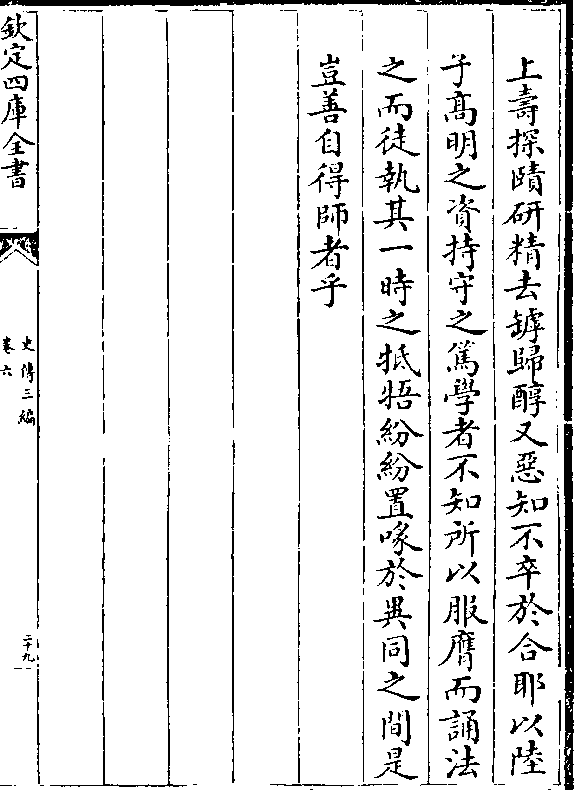 上壽探賾研精去罅歸醇又惡知不卒於合耶以陸
子髙明之資持守之篤學者不知所以服膺而誦法
之而徒執其一時之牴牾紛紛置喙於異同之間是
豈善自得師者乎
欽定四庫全書
史傳三編
卷六
二十九